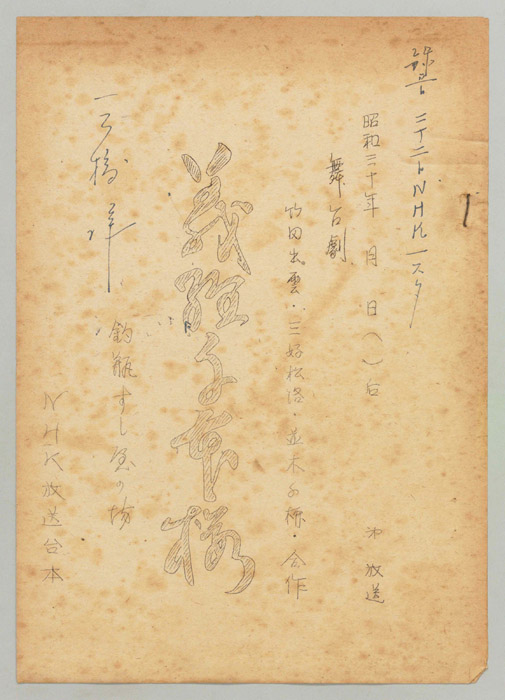 録音
NHK 一スタ
昭和三十年 月 日( )后 放送
舞台劇
竹田出雲・三好松洛・並木千柳・合作
義経千本桜
釣瓶すし屋の場
NHK放送台本